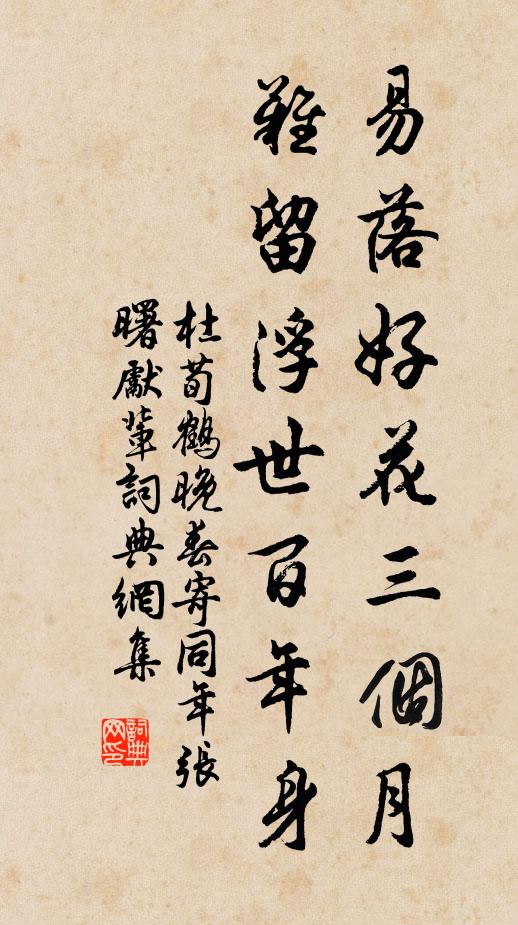 易落好花三個月
難留浮世百年身
杜荀鶴晚春寄同年張
曙獻輩詞典網集
詞典網印